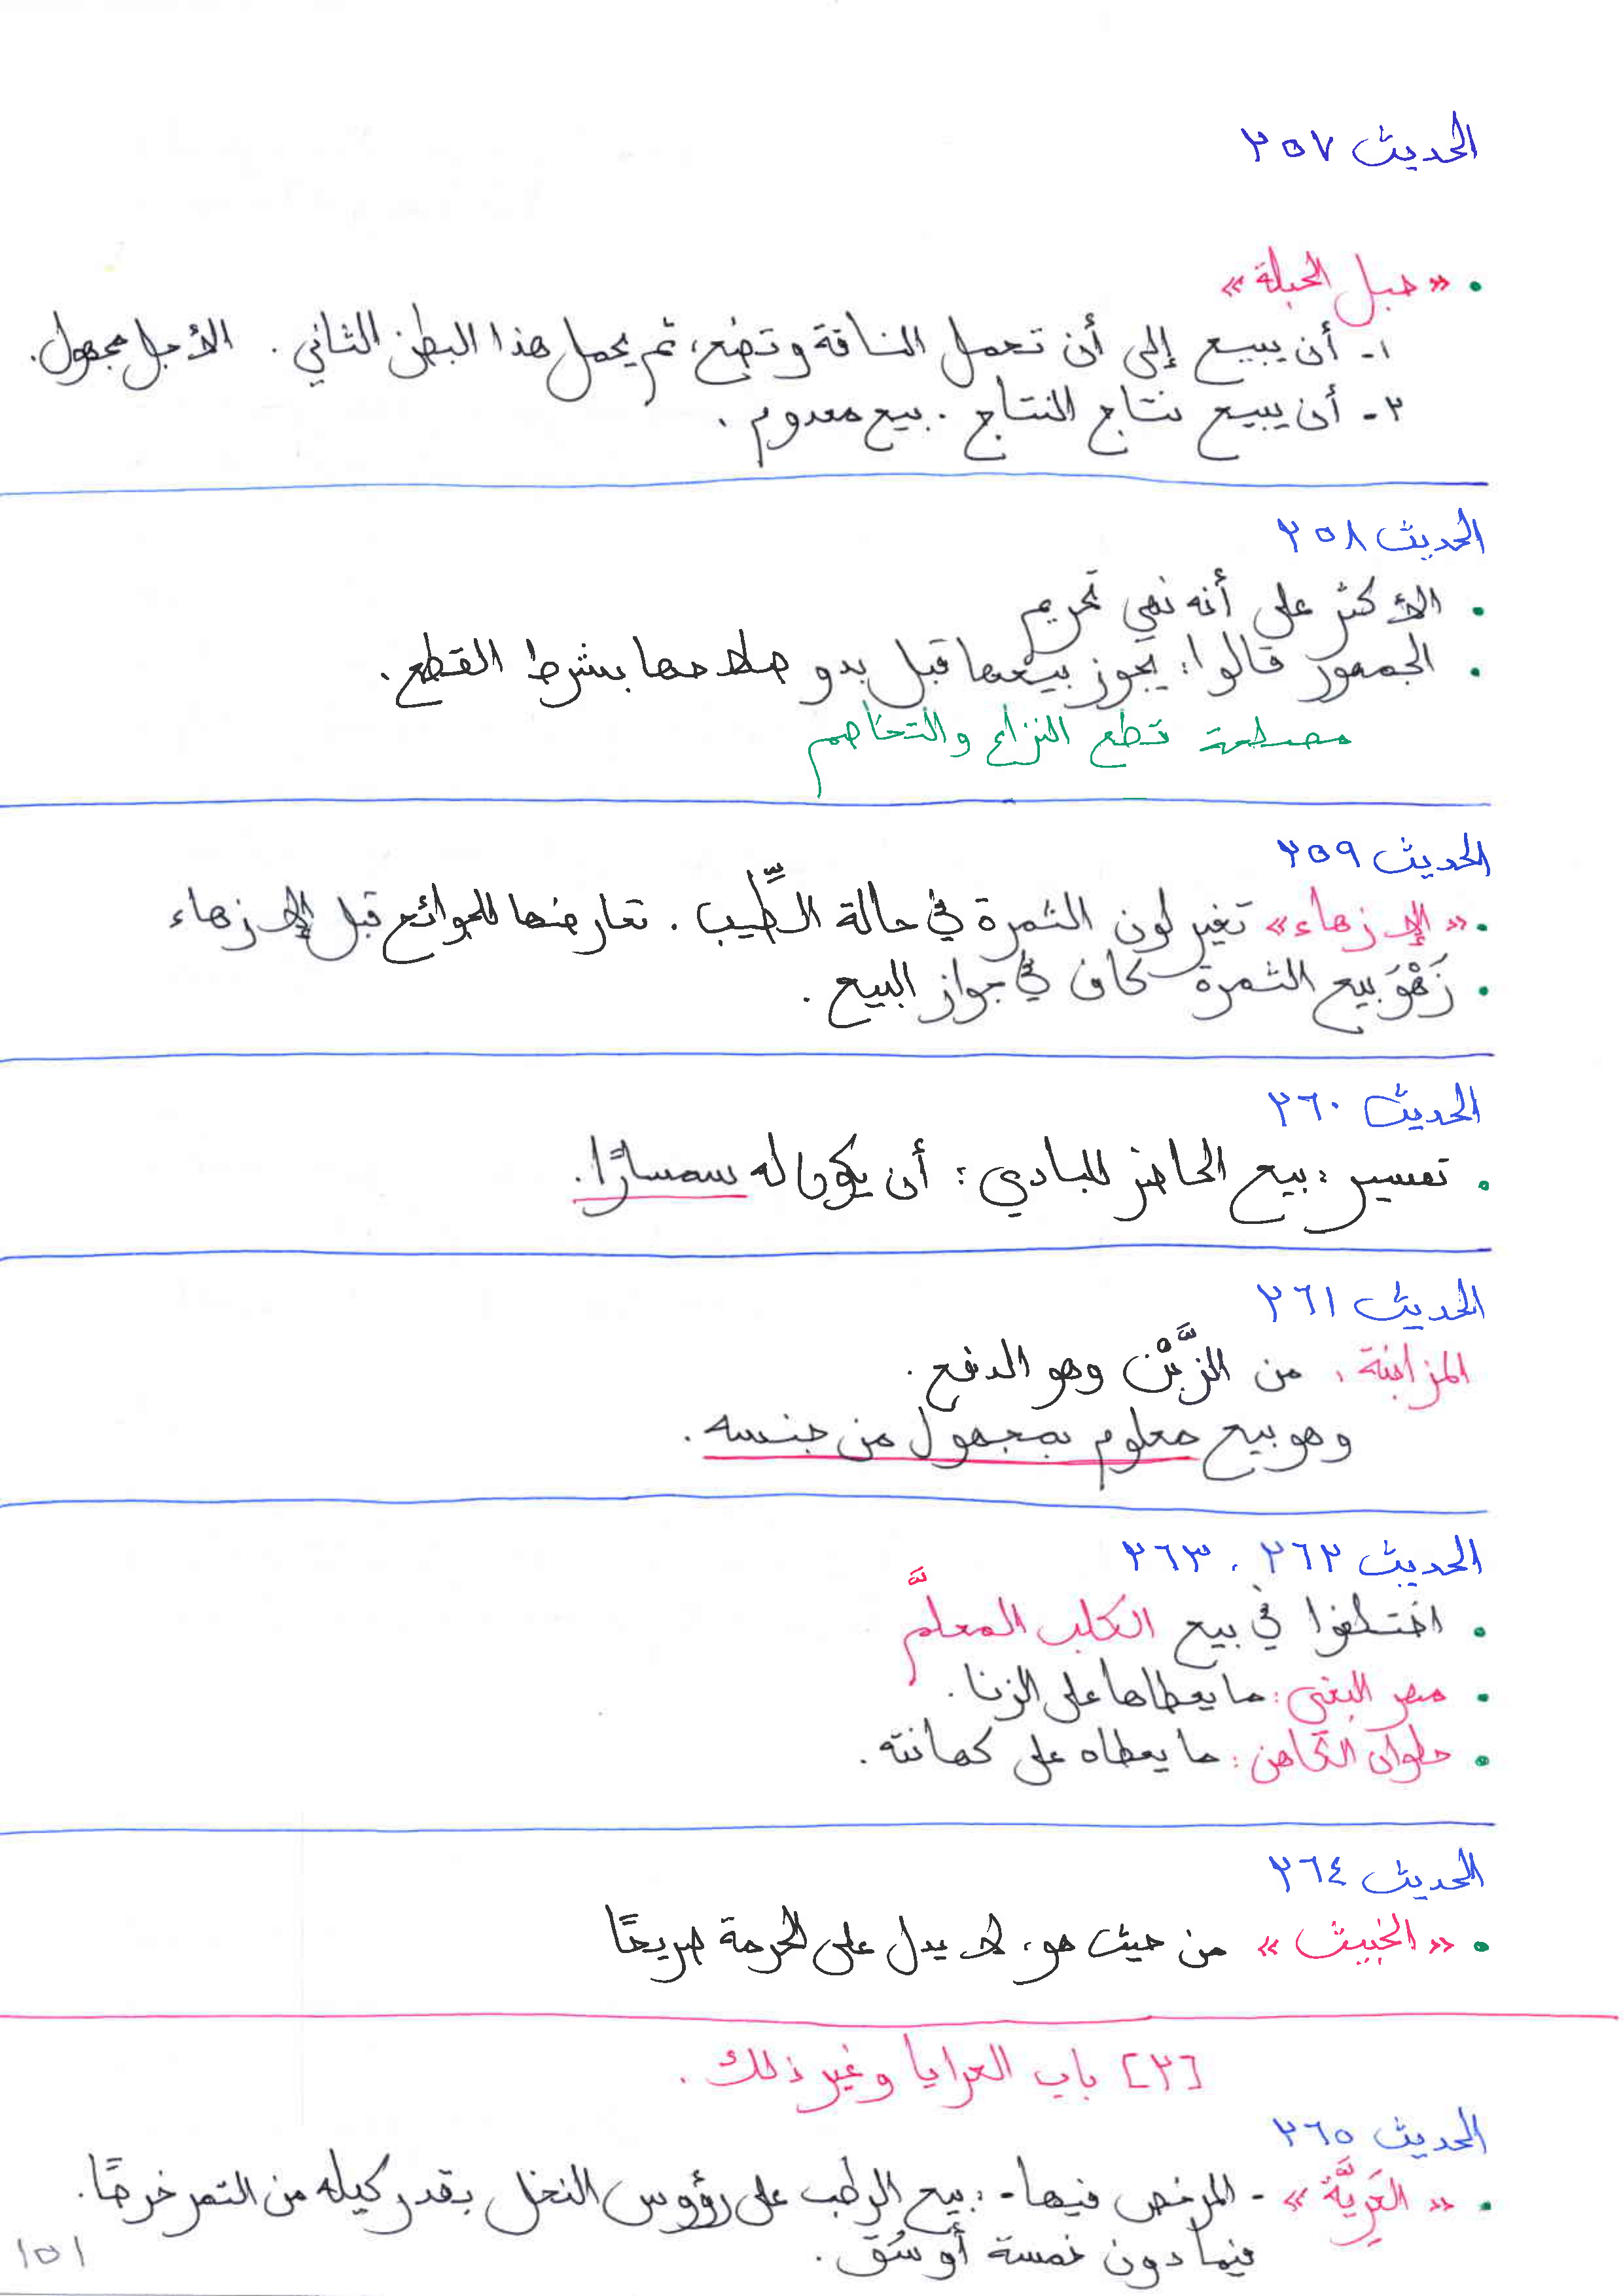 الحديث ٢٥٧
• «حبل الحبلة»
١- أن يبيع إلى أن تحمل الناقة وتضع، ثم يحمل هذا البطن الثاني. الأجل مجهول.
٢- أن يبيع نتاج النتاج. بيع معدوم.
الحديث ٢٥٨
• الأكثر على أنه نهي تحريم
• الجمهور قالوا: يجوز بيعها قبل بدو صلاحها بشرط القطع.
مصلحة قطع النزاع والتخاصم
الحديث ٢٥٩
• «الإزهاء» تغير لون الثمرة في حالة الطِّيب. تعارضها للجوائح قبل الإزهاء
• زَهْوَ بيع الثمرة كاف في جواز البيع.
الحديث ٢٦٠
• تفسير: بيع الحاضر للبادي: أن يكون له سمسارًا.
الحديث ٢٦١
المزابنة، من الزَّبْن وهو الدفع.
وهو بيع معلوم بمجهول من جنسه.
الحديث ٢٦٢، ٢٦٣
• اختلفوا في بيع الكلب المعلَّم
• مهر البغي: ما يعطاها على الزنا.
• حلوان الكاهن: ما يعطاه على كهانته.
الحديث ٢٦٤
• «الخبيث» من حيث هو، لا يدل على الحرمة صريحًا
[٢] باب العرايا وغير ذلك.
الحديث ٢٦٥
• «العَرِيَّة» - المرخص فيها -: بيع الرطب على رؤوس النخل بقدر كيله من التمر خرصًا.
فيما دون خمسة أوسُق.
١٥١